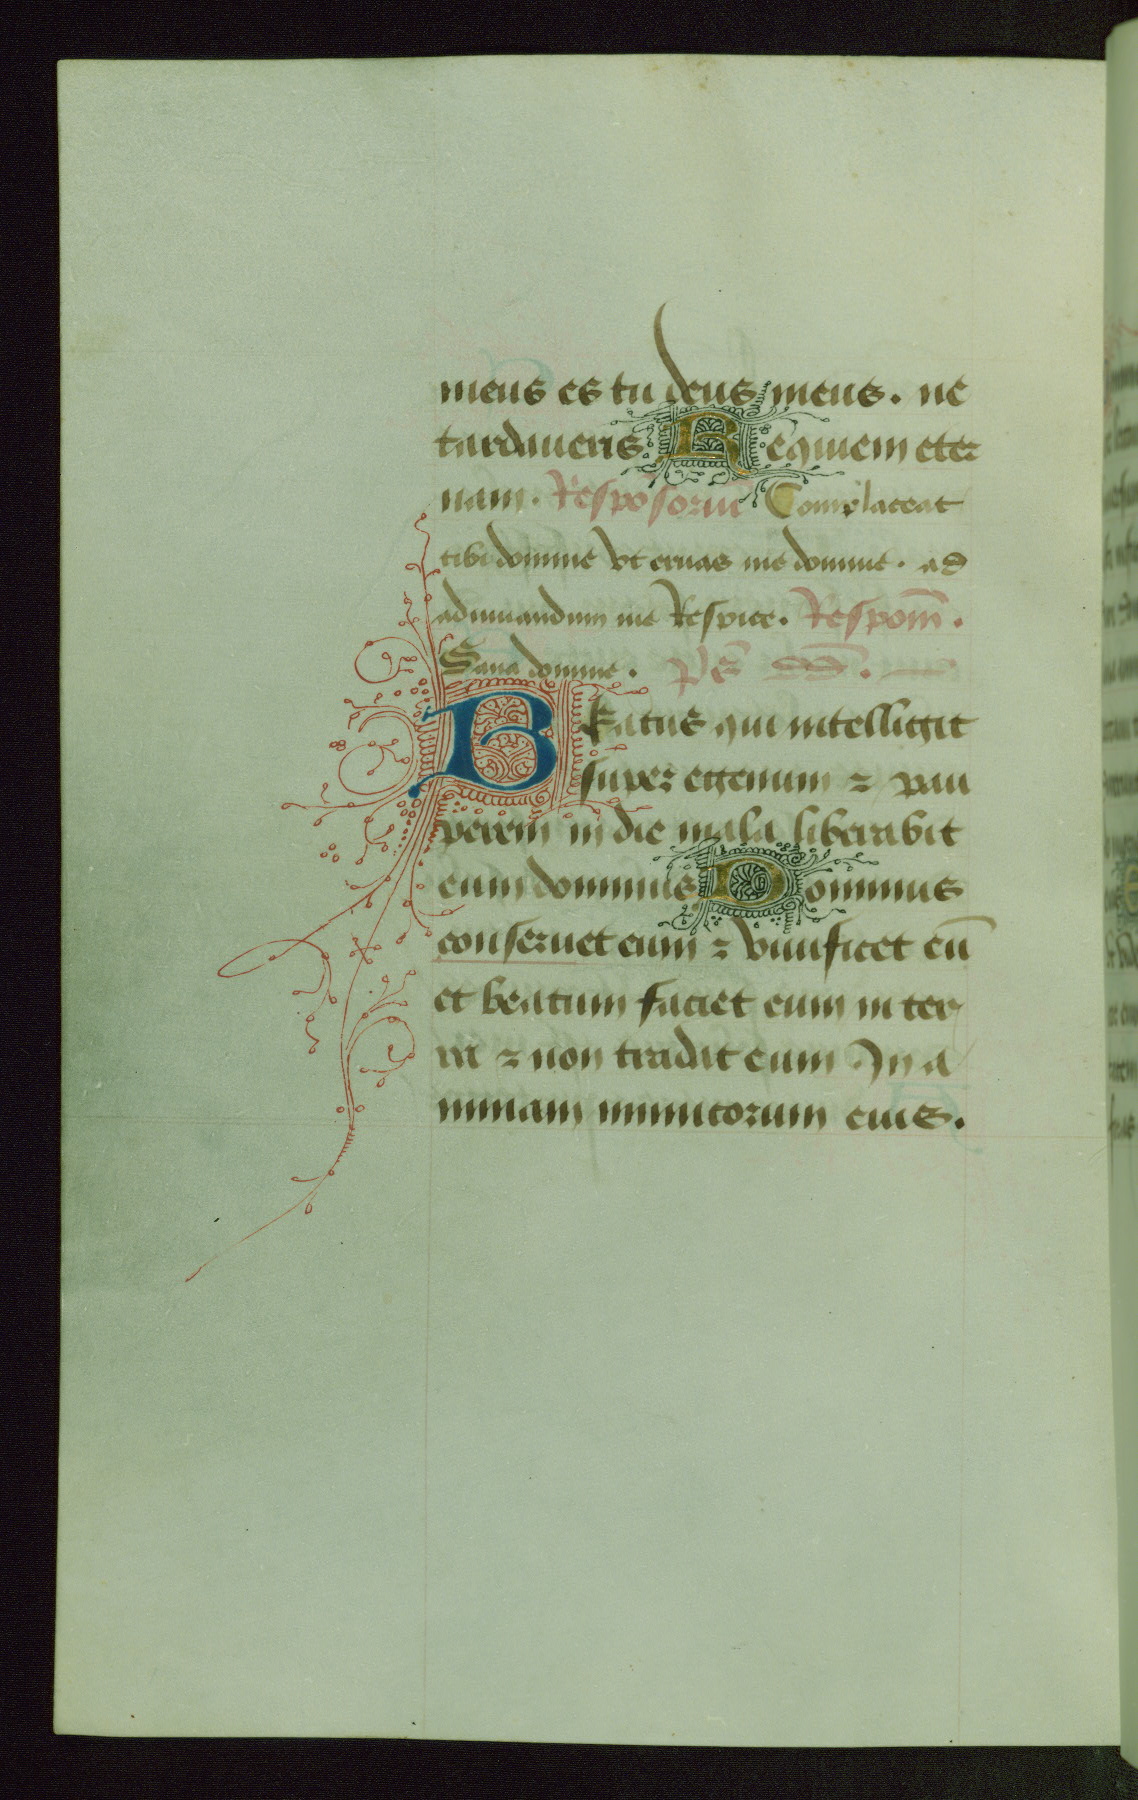 meus es tu deus meus. ne
tardaueris Requiem eter
nam. Respōsoriū Complaceat
tibi domine vt eruas me domine. ad
adiuuandum me Respice. Respom̄.
Sana domine. Ps̄ dd̄.
Beatus qui intelligit
super egenum ⁊ pau
perem in die mala liberabit
eum dominus Dominus
conseruet eum ⁊ viuificet eū
et beatum faciet eum in ter
ra ⁊ non tradat eum In a
nimam inimicorum eius.